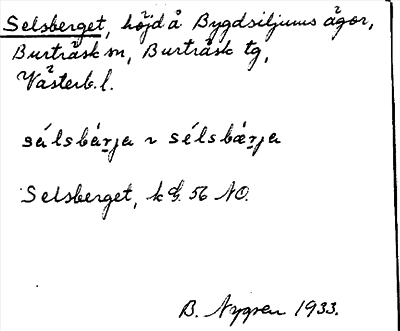 Selsberget, höjd å Bygdsiljums ägor,
Burträsk sn, Burträsk tg,
Västerb. l.
sálsbárja ~ sélsbærja
Selsberget, k bl. 56 NO.
B. Nygren 1933.